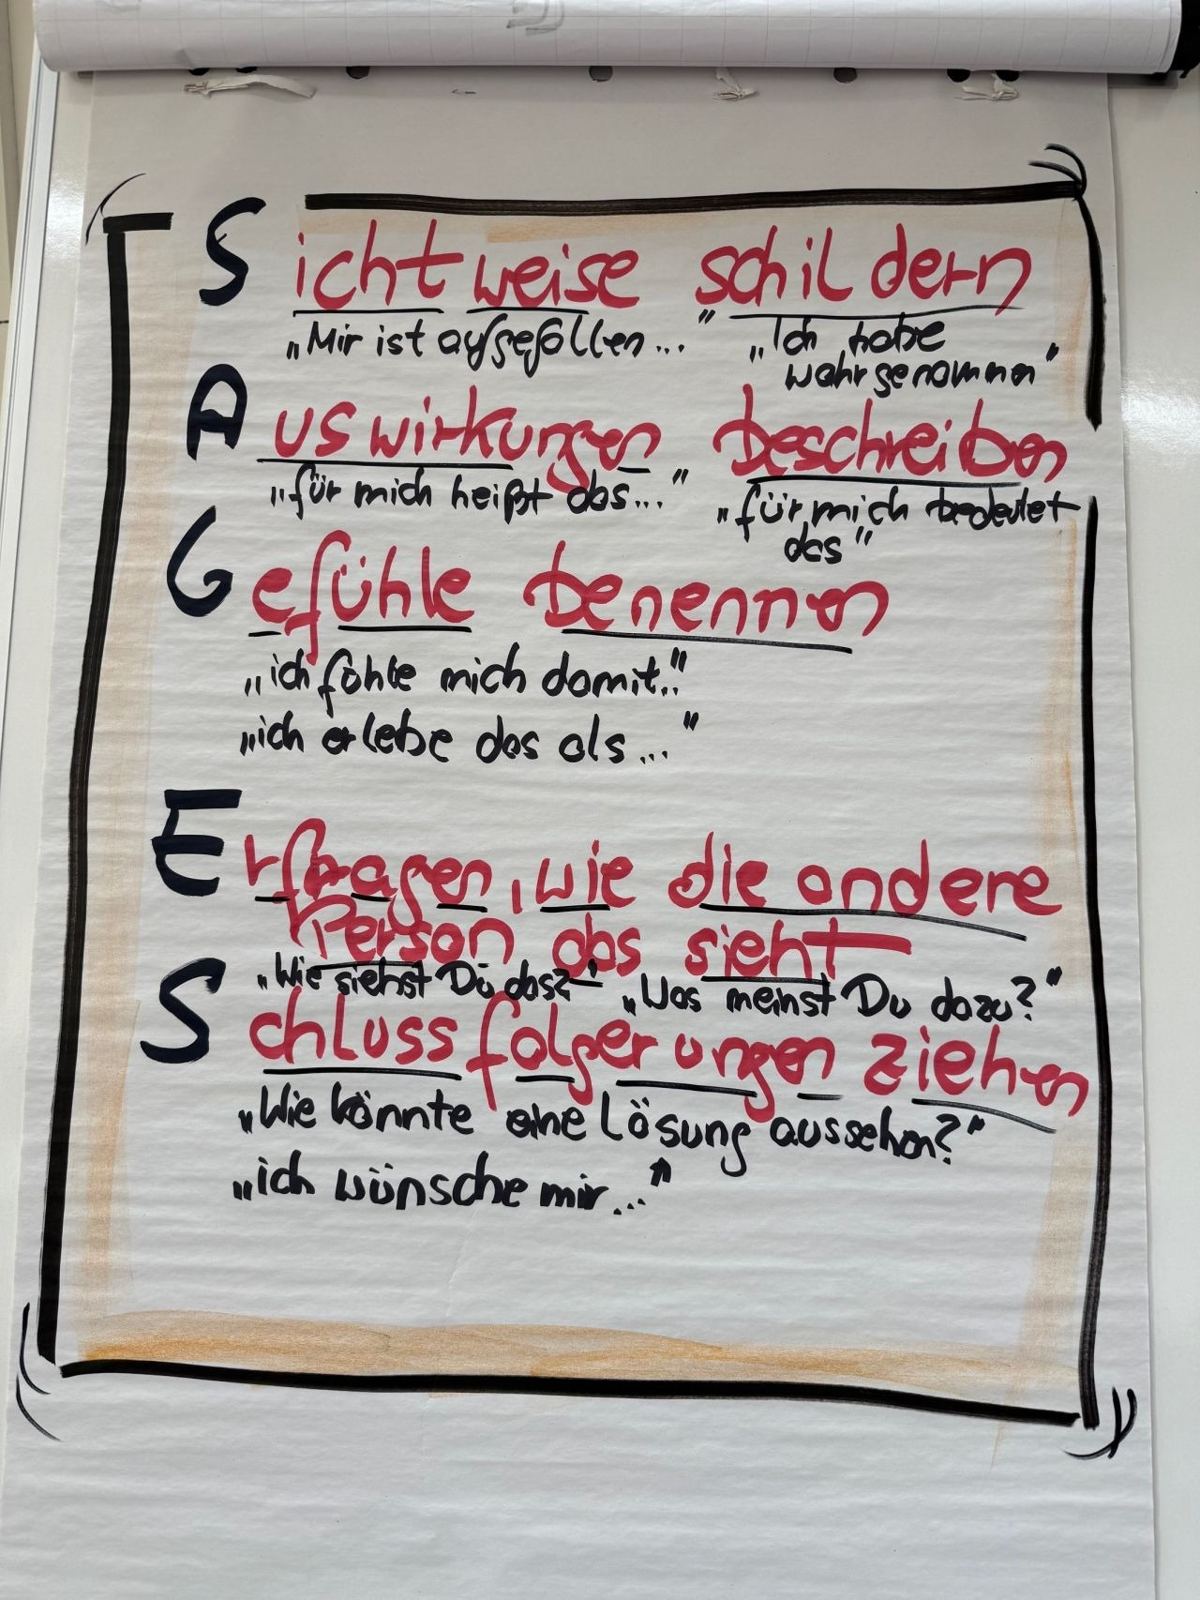 Sichtweise schildern
„Mir ist aufgefallen..." „Ich habe
wahrgenommen"
Auswirkungen beschreiben
„für mich heißt das..." „für mich bedeutet
das"
Gefühle benennen
„ich fühle mich damit.."
„ich erlebe das als..."
Erfragen, wie die andere
Person das sieht
„Wie siehst Du das?" „Was meinst Du dazu?"
Schlussfolgerungen ziehen
„Wie könnte eine Lösung aussehen?"
„ich wünsche mir..."